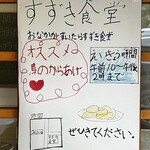 すずき食堂
おなかがすいたらすずき食堂
オススメ
鳥のからあげ
えいぎょう時間
午前10～午後
2時まで
ぜひきてください。